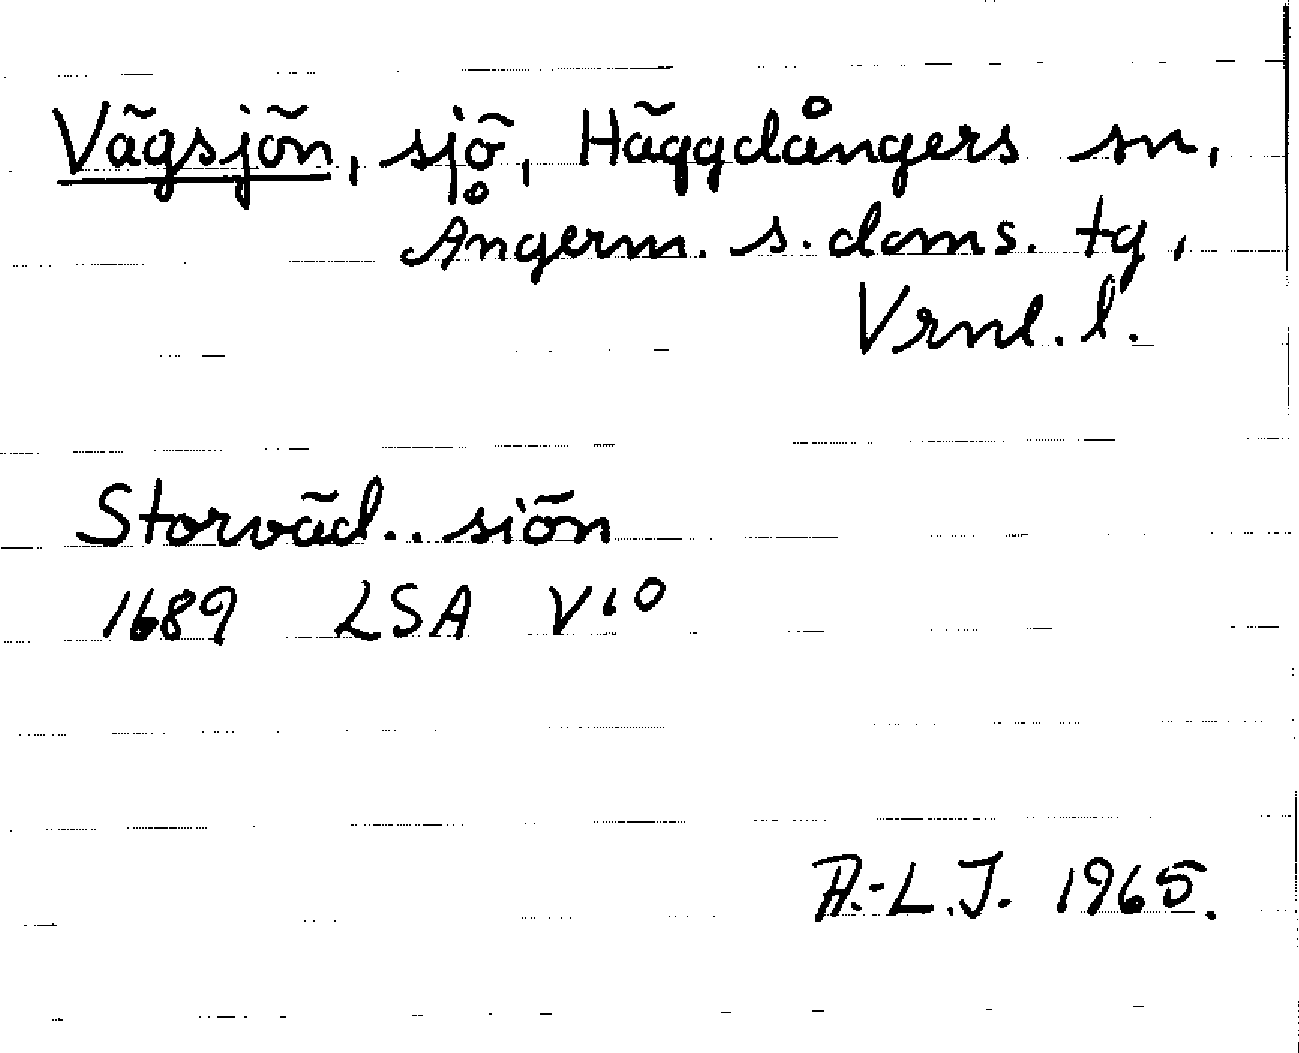 Vägsjön, sjö, Häggdångers sn,
Ångerm. s. doms. tg,
Vrnl. l.
Storväd.. siön
1689 LSA V10
A.-L.J. 1965.